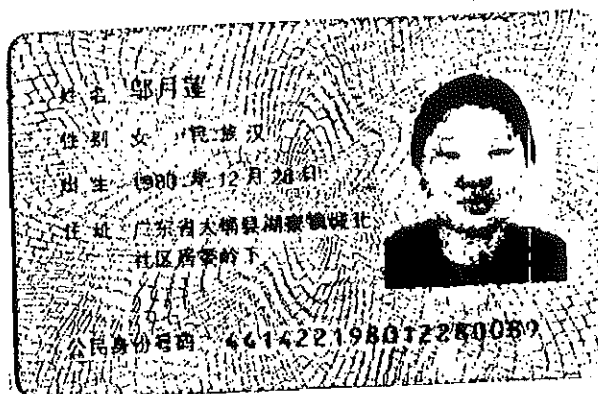 姓名 邬月莲
性别 女 民族 汉
出生 1980 年 12 月 28 日
住址 广东省大埔县湖寮镇城北
社区居委岭下
公民身份号码 441422198012280089